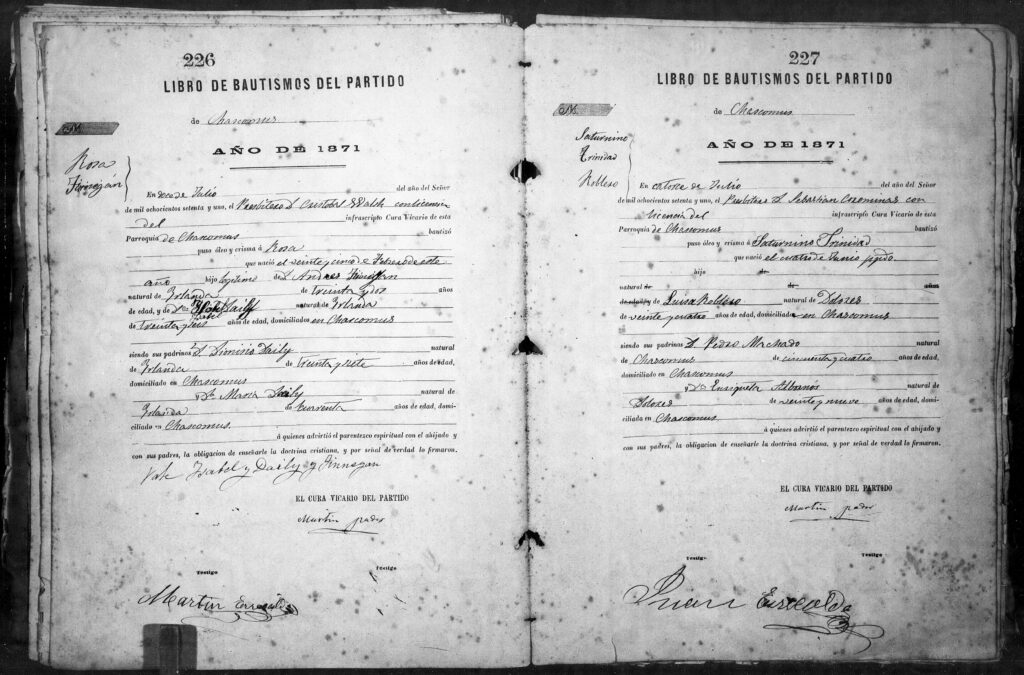 226
LIBRO DE BAUTISMOS DEL PARTIDO
de Chascomus
AÑO DE 1871
Rosa
Finnegán
En doce de Julio del año del Señor
de mil ochocientos setenta y uno, el Presbitero D Cristobal Walsh con licencia
del infrascripto Cura Vicario de esta
Parroquia de Chascomus bautizó
puso óleo y crisma á Rosa
que nació el veinte y cinco de Febrero de este
año hijo legitimo de D Andres
natural de Irlanda de treinta y dos años
de edad, y de Da Daily natural de Irlanda
de treinta y seis años de edad, domiciliados en Chascomus
siendo sus padrinos D Dionisio Daily natural
de Irlanda de treinta y siete años de edad,
domiciliado en Chascomus
y Da Maria Daily natural de
Irlanda de cuarenta años de edad, domi-
ciliado en Chascomus.
á quienes advirtió el parentezco espiritual con el ahijado y
con sus padres, la obligacion de enseñarle la doctrina cristiana, y por señal de verdad lo firmaron.
Vale Isabel y Daily y Finnegan
EL CURA VICARIO DEL PARTIDO
Martin
Testigo Testigo
Martin Errecalde
227
LIBRO DE BAUTISMOS DEL PARTIDO
de Chascomus
AÑO DE 1871
Saturnino
Trinidad
Robleso
En catorce de Julio del año del Señor
de mil ochocientos setenta y uno, el Presbitero D Sebastian Corominas con
licencia del infrascripto Cura Vicario de esta
Parroquia de Chascomus bautizó
puso óleo y crisma á Saturnino Trinidad
que nació el cuatro de Junio ppdo.
hijo de
natural de de años
de edad y de Luisa Robleso natural de Dolores
de veinte y cuatro años de edad, domiciliados en Chascomus
siendo sus padrinos D Pedro Machado natural
de Chascomus de cincuenta y cuatro años de edad,
domiciliado en Chascomus
y Da Enriqueta natural de
Dolores de veinte y nueve años de edad, domi-
ciliada en Chascomus.
á quienes advirtió el parentezco espiritual con el ahijado y
con sus padres, la obligacion de enseñarle la doctrina cristiana, y por señal de verdad lo firmaron.
EL CURA VICARIO DEL PARTIDO
Martin
Testigo Testigo
Juan Errecalde